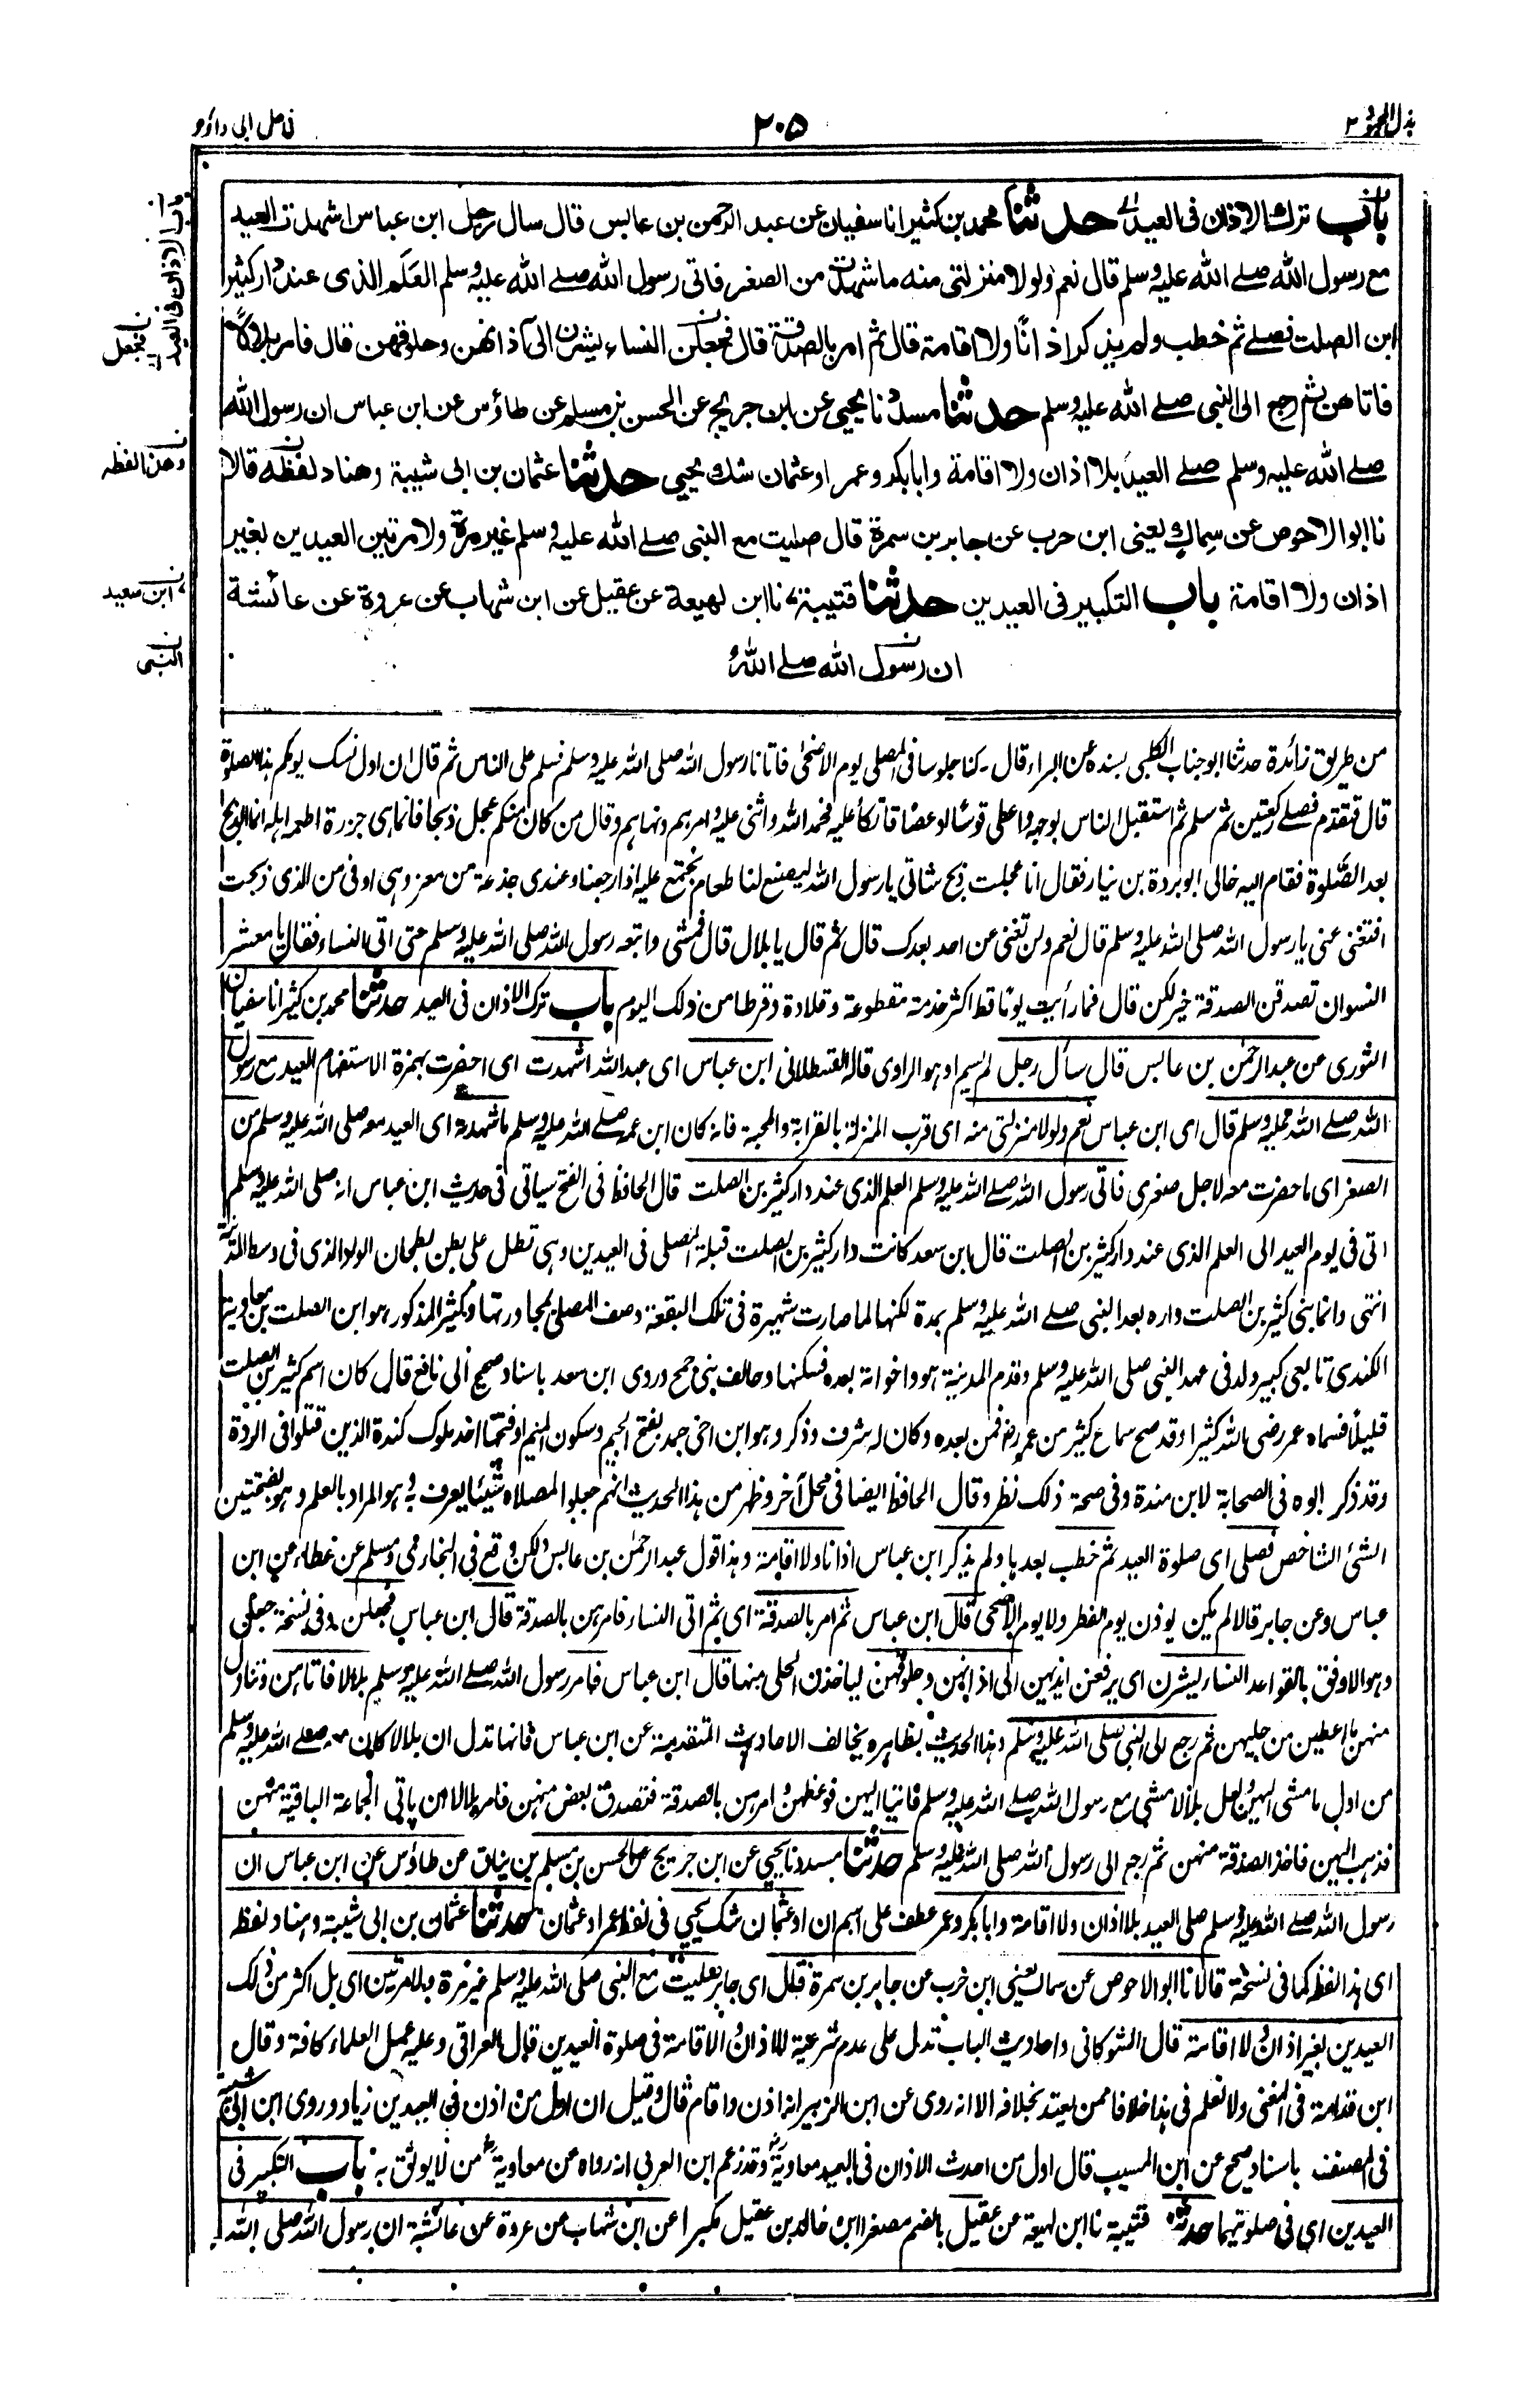 بذل المجهود ٢
٢٠٥
فی حل ابی داؤد
باب ترك الاذان فی العید حدثنا محمد بن كثیر انا سفیان عن عبد الرحمن بن عابس قال سال رجل ابن عباس اشهدت العید
مع رسول الله صلے الله علیه وسلم قال نعم ولولا منزلتی منه ما شهدته من الصغر فاتی رسول الله صلے الله علیه وسلم العَلَم الذی عند دار كثیر
ابن الصلت فصلے ثم خطب ولم یذكر اذانًا ولا اقامة قال ثم امر بالصدقة قال فجعلن النساء یشرن الی آذانهن وحلوقهن قال فامر بلالًا
فاتاهن ثم رجع الی النبی صلے الله علیه وسلم حدثنا مسدد نا یحیی عن ابن جریج عن الحسن بن مسلم عن طاؤس عن ابن عباس ان رسول الله
صلے الله علیه وسلم صلے العید بلا اذان ولا اقامة وابا بكر وعمر او عثمان شك یحیی حدثنا عثمان بن ابی شیبة وهناد لفظه قالا
نا ابو الاحوص عن سماك یعنی ابن حرب عن جابر بن سمرة قال صلیت مع النبی صلے الله علیه وسلم غیر مرة ولا مرتین العیدین بغیر
اذان ولا اقامة باب التكبیر فی العیدین حدثنا قتیبة نا ابن لهیعة عن عقیل عن ابن شهاب عن عروة عن عائشة
ان رسول الله صلے الله
باب الاذان فی العید
فجعل
وهذا لفظه
ابن سعید
النبی
من طریق زائدة حدثنا ابو جناب الكلبی بسنده عن البراء قال كنا جلوسا فی المصلی یوم الاضحی فاتانا رسول الله صلی الله علیه وسلم فسلم علی الناس ثم قال ان اول نسك یومكم هذا الصلوة
قال فتقدم فصلے ركعتین ثم سلم ثم استقبل الناس بوجهه واعطی قوسًا او عصًا فاتكأ علیه فحمد الله واثنی علیه وامرهم ونهاهم وقال من كان منكم عجل ذبحا فانما هی جزرة اطعمه اهله انما الذبح
بعد الصلوة فقام الیه خالی ابو بردة بن نیار فقال انا عجلت ذبح شاتی یا رسول الله لیصنع لنا طعام نجتمع علیه اذا رجعنا وعندی جذعة من معز وهی اوفی من الذی ذبحت
افتغنی عنی یا رسول الله صلی الله علیه وسلم قال نعم ولن تغنی عن احد بعدك قال ثم قال یا بلال قال فمشی واتبعه رسول الله صلی الله علیه وسلم حتی اتی النساء فقال یا معشر
النسوان تصدقن الصدقة خیر لكن قال فما رأیت یومًا قط اكثر خدمة مقطوعة وقلادة وقرطا من ذلك الیوم باب ترك الاذان فی العید حدثنا محمد بن كثیر انا سفیان
الثوری عن عبد الرحمن بن عابس قال سأل رجل لم یسم او هو الراوی قاله القسطلانی ابن عباس ای عبد الله اشهدت ای احضرت بهمزة الاستفهام العید مع رسول
الله صلے الله علیه وسلم قال ای ابن عباس نعم ولولا منزلتی منه ای قرب المنزلة بالقرابة والمحبة فانه كان ابن عمه صلے الله علیه وسلم ما شهدته ای العید معه صلی الله علیه وسلم من
الصغر ای ما حضرت معه لاجل صغری فاتی رسول الله صلے الله علیه وسلم العلم الذی عند دار كثیر بن الصلت قال الحافظ فی الفتح سیاتی فی حدیث ابن عباس انه صلی الله علیه وسلم
اتی فی یوم العید الی العلم الذی عند دار كثیر بن الصلت قال ابن سعد كانت دار كثیر بن الصلت قبلة المصلی فی العیدین وهی تطل علی بطن بطحان الوادی الذی فی وسط المدینة
انتهی وانما بنی كثیر بن الصلت داره بعد النبی صلے الله علیه وسلم بمدة لكنها لما صارت شهیرة فی تلك البقعة وصف المصلی بمجاورتها وكثیر المذكور هو ابن الصلت بن معاویة
الكندی تابعی كبیر ولد فی عهد النبی صلی الله علیه وسلم وقدم المدینة هو واخوانه بعده فسكنها وحالف بنی جمح وروی ابن سعد باسناد صحیح الی نافع قال كان اسم كثیر بن الصلت
قلیلًا فسماه عمر رضی الله كثیرا وقد صح سماع كثیر من عمر رض فمن بعده وكان له شرف وذكر وهو ابن اخی جمد بفتح الجیم وسكون المیم او فتحها احد ملوك كندة الذین قتلوا فی الردة
وقد ذكر ابوه فی الصحابة لابن مندة وفی صحة ذلك نظر وقال الحافظ ایضا فی محل آخر وظهر من هذا الحدیث انهم جعلوا لمصلاه شیئًا یعرف به وهو المراد بالعلم وهو بفتحتین
الشئ الشاخص فصلی ای صلوة العید ثم خطب بعدها ولم یذكر ابن عباس اذانا ولا اقامة وهذا قول عبد الرحمن بن عابس ولكن وقع فی البخاری ومسلم عن عطاء عن ابن
عباس وعن جابر قالا لم یكن یوذن یوم الفطر ولا یوم الاضحی قال ابن عباس ثم امر بالصدقة ای ثم اتی النساء فامرهن بالصدقة قال ابن عباس فجعلن وفی نسخة جعل
وهو الاوفق بالقواعد النساء یشرن ای یرفعن ایدیهن الی اذانهن وحلوقهن لیاخذن الحلی منها قال ابن عباس فامر رسول الله صلے الله علیه وسلم بلالا فاتاهن وتناول
منهن ما اعطین من حلیهن ثم رجع الی النبی صلی الله علیه وسلم وهذا الحدیث بظاهره یخالف الاحادیث المتقدمة عن ابن عباس فانها تدل ان بلالا كان معه صلے الله علیه وسلم
من اول ما مشی الیهن ولعل بلالا مشی مع رسول الله صلے الله علیه وسلم فاتیا الیهن فوعظهن وامرهن بالصدقة فتصدق بعض منهن فامر بلالا ان یاتی الجماعة الباقیة منهن
فذهب الیهن فاخذ الصدقة منهن ثم رجع الی رسول الله صلی الله علیه وسلم حدثنا مسدد نا یحیی عن ابن جریج عن الحسن بن مسلم بن یناق عن طاؤس عن ابن عباس ان
رسول الله صلے الله علیه وسلم صلی العید بلا اذان ولا اقامة وابا بكر وعمر عطف علی اسم ان او عثمان شك یحیی فی لفظ عمر او عثمان حدثنا عثمان بن ابی شیبة وهناد لفظه
ای هذا لفظه كما فی نسخة قالا نا ابو الاحوص عن سماك یعنی ابن حرب عن جابر بن سمرة قال ای جابر صلیت مع النبی صلی الله علیه وسلم غیر مرة ولا مرتین ای بل اكثر من ذلك
العیدین بغیر اذان ولا اقامة قال الشوكانی واحادیث الباب تدل علی عدم شرعیة الاذان والاقامة فی صلوة العیدین قال العراقی وعلیه عمل العلماء كافة وقال
ابن قدامة فی المغنی ولا نعلم فی هذا خلافا ممن یعتد بخلافه الا انه روی عن ابن الزبیر انه اذن واقام قال وقیل ان اول من اذن فی العیدین زیاد وروی ابن ابی شیبة
فی المصنف باسناد صحیح عن ابن المسیب قال اول من احدث الاذان فی العید معاویة وقد زعم ابن العربی انه رواه عن معاویة من لا یوثق به باب التكبیر فی
العیدین ای فی صلوتیهما حدثنا قتیبة نا ابن لهیعة عن عقیل بالضم مصغرا ابن خالد بن عقیل مكبرا عن ابن شهاب عن عروة عن عائشة ان رسول الله صلی الله